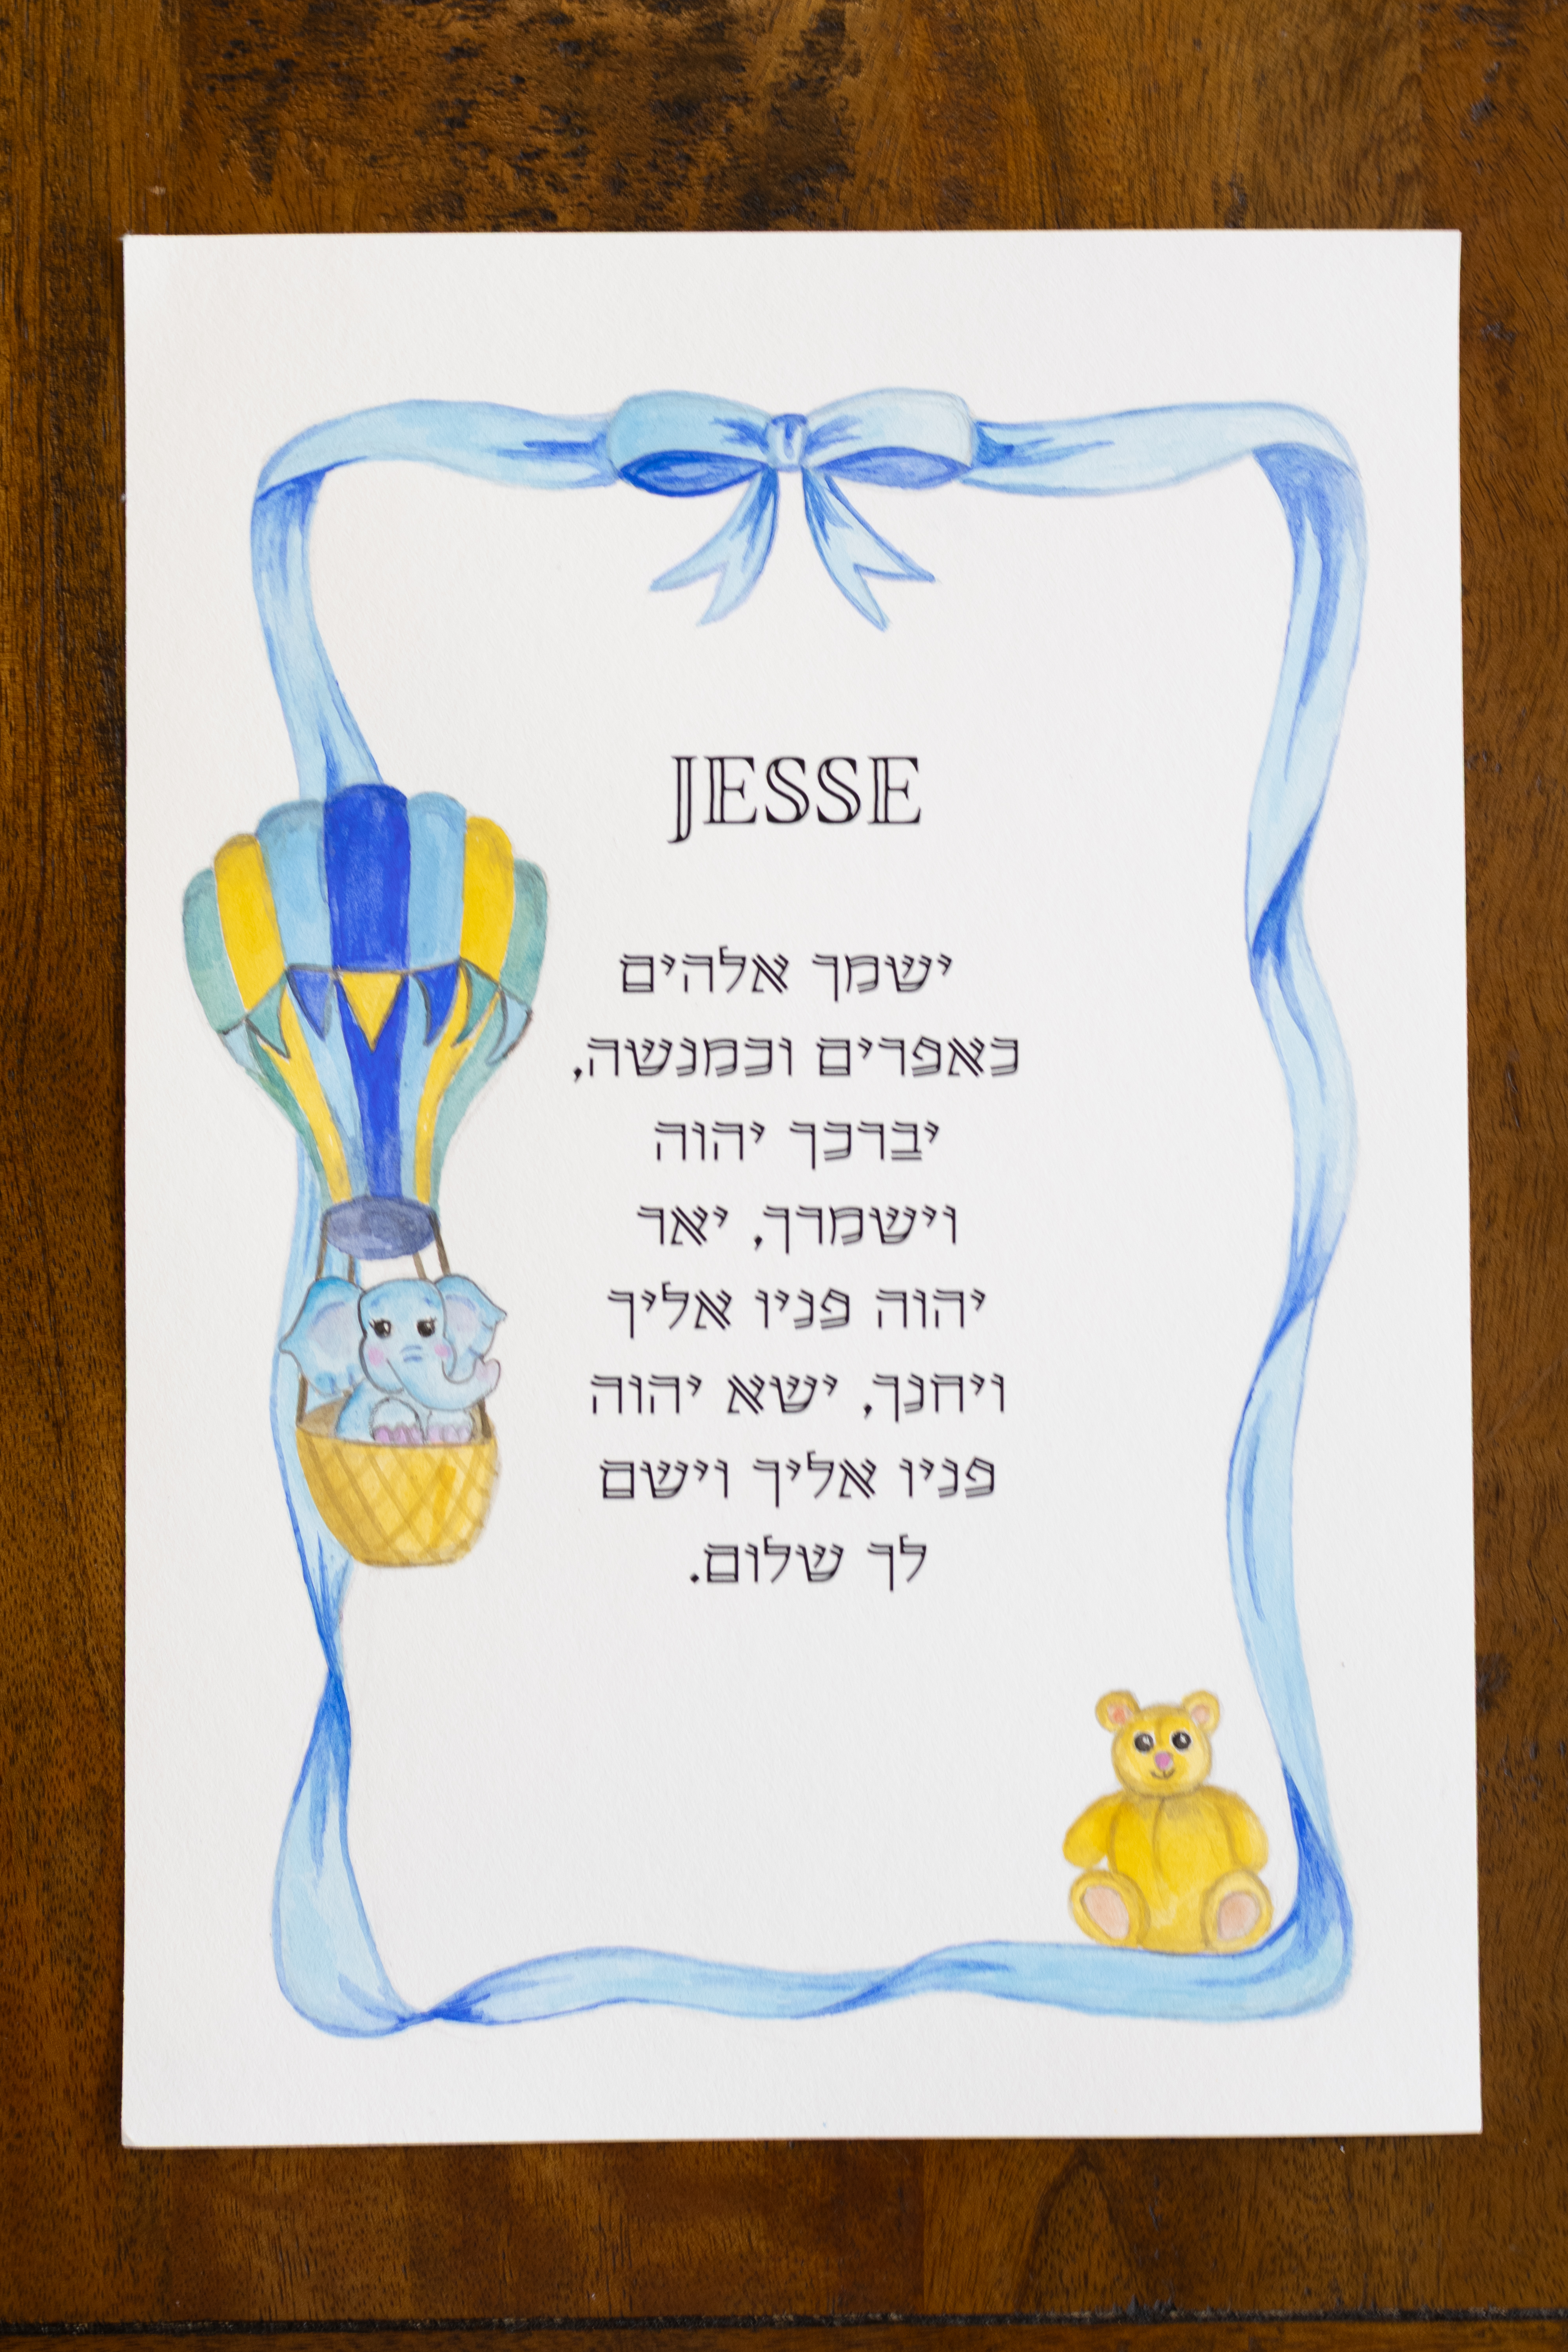 JESSE
ישמך אלהים
כאפרים וכמנשה,
יברכך יהוה
וישמרך, יאר
יהוה פניו אליך
ויחנך, ישא יהוה
פניו אליך וישם
לך שלום.